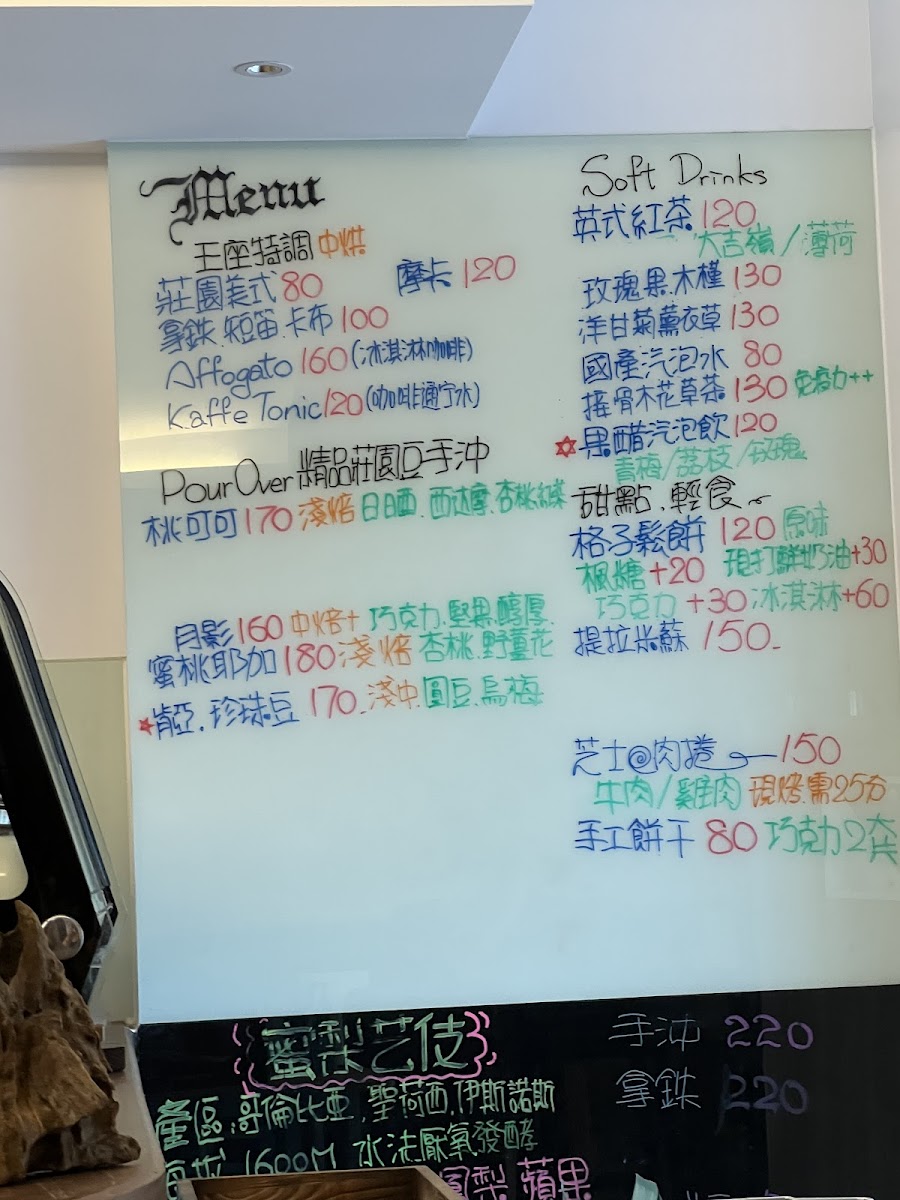 Menu
王座特調 中烘
莊園美式 80 摩卡 120
拿鉄.短笛.卡布 100
Affogato 160 (冰淇淋咖啡)
Kaffe Tonic 120 (咖啡通宁水)
Pour Over 精品莊園豆手沖
桃可可 170 淺焙 日晒.西达摩.杏桃紅茶
月影 160 中焙+ 巧克力.堅果.醇厚.
蜜桃耶加 180 淺焙 杏桃.野薑花
肯亞.珍珠豆 170 淺中 圓豆.烏梅
Soft Drinks
英式紅茶 120
大吉嶺 / 薄荷
玫瑰果.木槿 130
洋甘菊薰衣草 130
國產汽泡水 80
接骨木花草茶 130 免疫力++
果醋汽泡飲 120
青梅/荔枝/玫瑰
甜點.輕食
格子鬆餅 120 原味
楓糖 +20 現打鮮奶油+30
巧克力 +30 冰淇淋+60
提拉米蘇 150
芝士@肉捲 150
牛肉/雞肉 現烤.需25分
手工餅干 80 巧克力2片
蜜梨艺伎
手沖 220
拿鉄 220
產區:哥倫比亞,聖荷西.伊斯諾斯
1600M 水洗厭氧發酵
鳳梨 蘋果